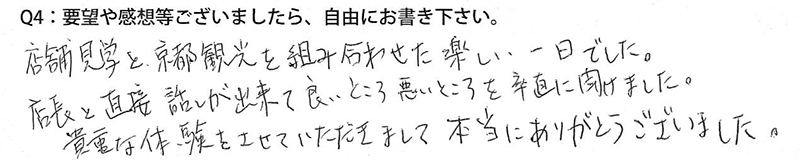 Q4：要望や感想等ございましたら、自由にお書き下さい。
店舗見学と、京都観光を組み合わせた楽しい一日でした。
店長と直接話しが出来て良いところ悪いところを率直に聞けました。
貴重な体験をさせていただきまして本当にありがとうございました。